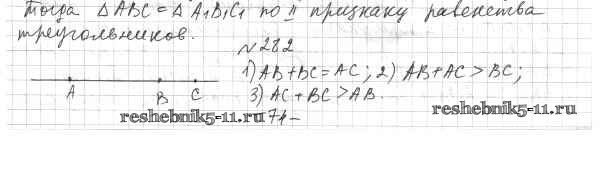 Тогда △ABC = △A₁B₁C₁ по II признаку равенства
треугольников.
№282
1) AB+BC=AC; 2) AB+AC>BC;
A B C
3) AC+BC>AB.
reshebnik5-11.ru
reshebnik5-11.ru
71-